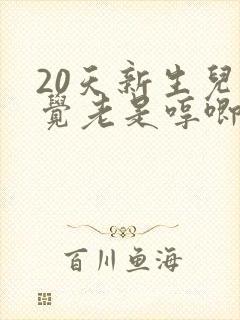 20天新生兒
覺老是哼唧
百川鱼海